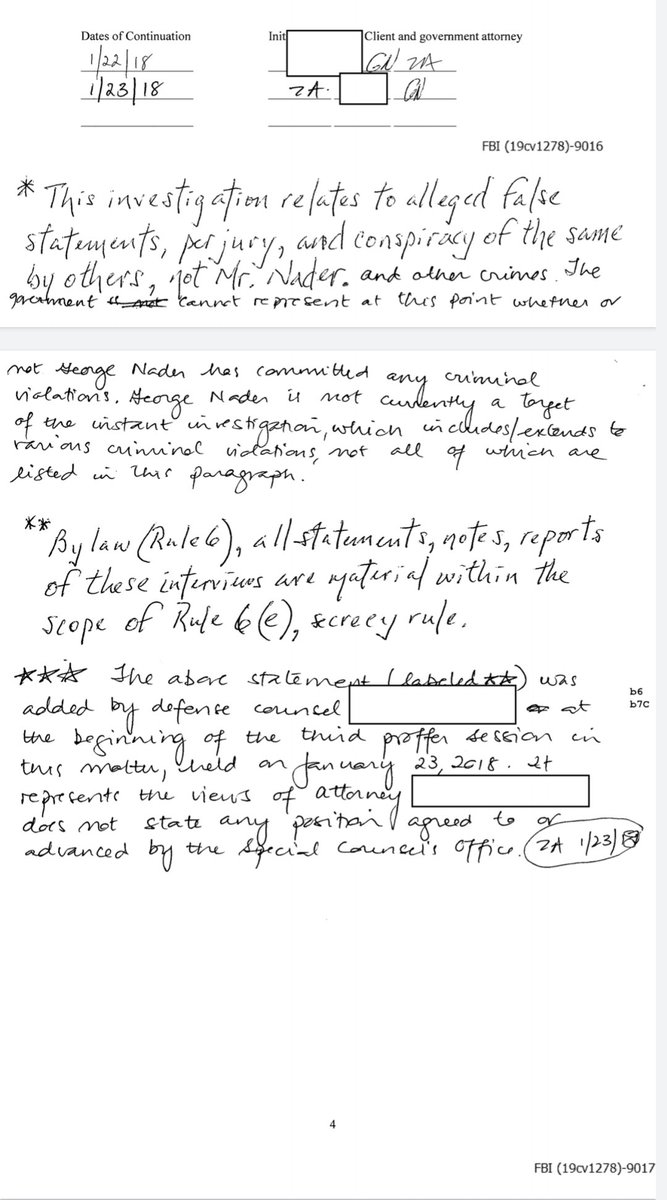 Dates of Continuation Init Client and government attorney
1/22/18 GN ZA
1/23/18 ZA. GN
FBI (19cv1278)-9016
* This investigation relates to alleged false
statements, perjury, and conspiracy of the same
by others, not Mr. Nader. and other crimes. The
government is not cannot represent at this point whether or
not George Nader has committed any criminal
violations. George Nader is not currently a target
of the instant investigation, which includes/extends to
various criminal violations, not all of which are
listed in this paragraph.
** By law (Rule 6), all statements, notes, reports
of these interviews are material within the
scope of Rule 6(e), secrecy rule.
*** The above statement (labeled **) was
added by defense counsel at
b6
b7C
the beginning of the third proffer session in
this matter, held on January 23, 2018. It
represents the views of attorney
does not state any position agreed to or
advanced by the Special Counsel's Office. ZA 1/23/18
4
FBI (19cv1278)-9017